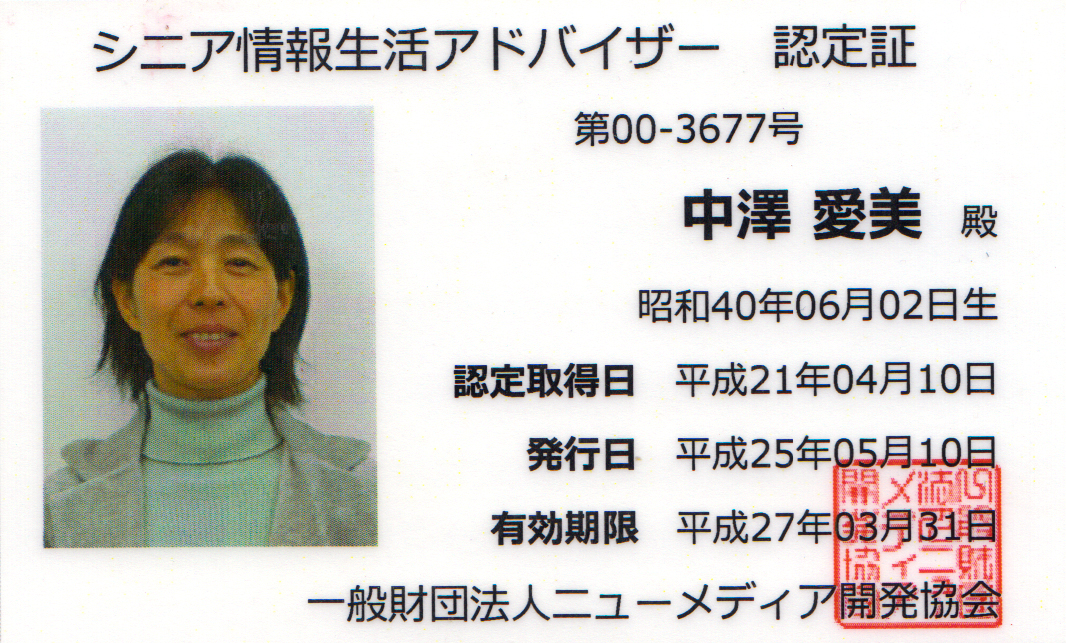 シニア情報生活アドバイザー　認定証
第00-3677号
中澤 愛美 殿
昭和40年06月02日生
認定取得日　平成21年04月10日
発行日　平成25年05月10日
有効期限　平成27年03月31日
一般財団法人ニューメディア開発協会